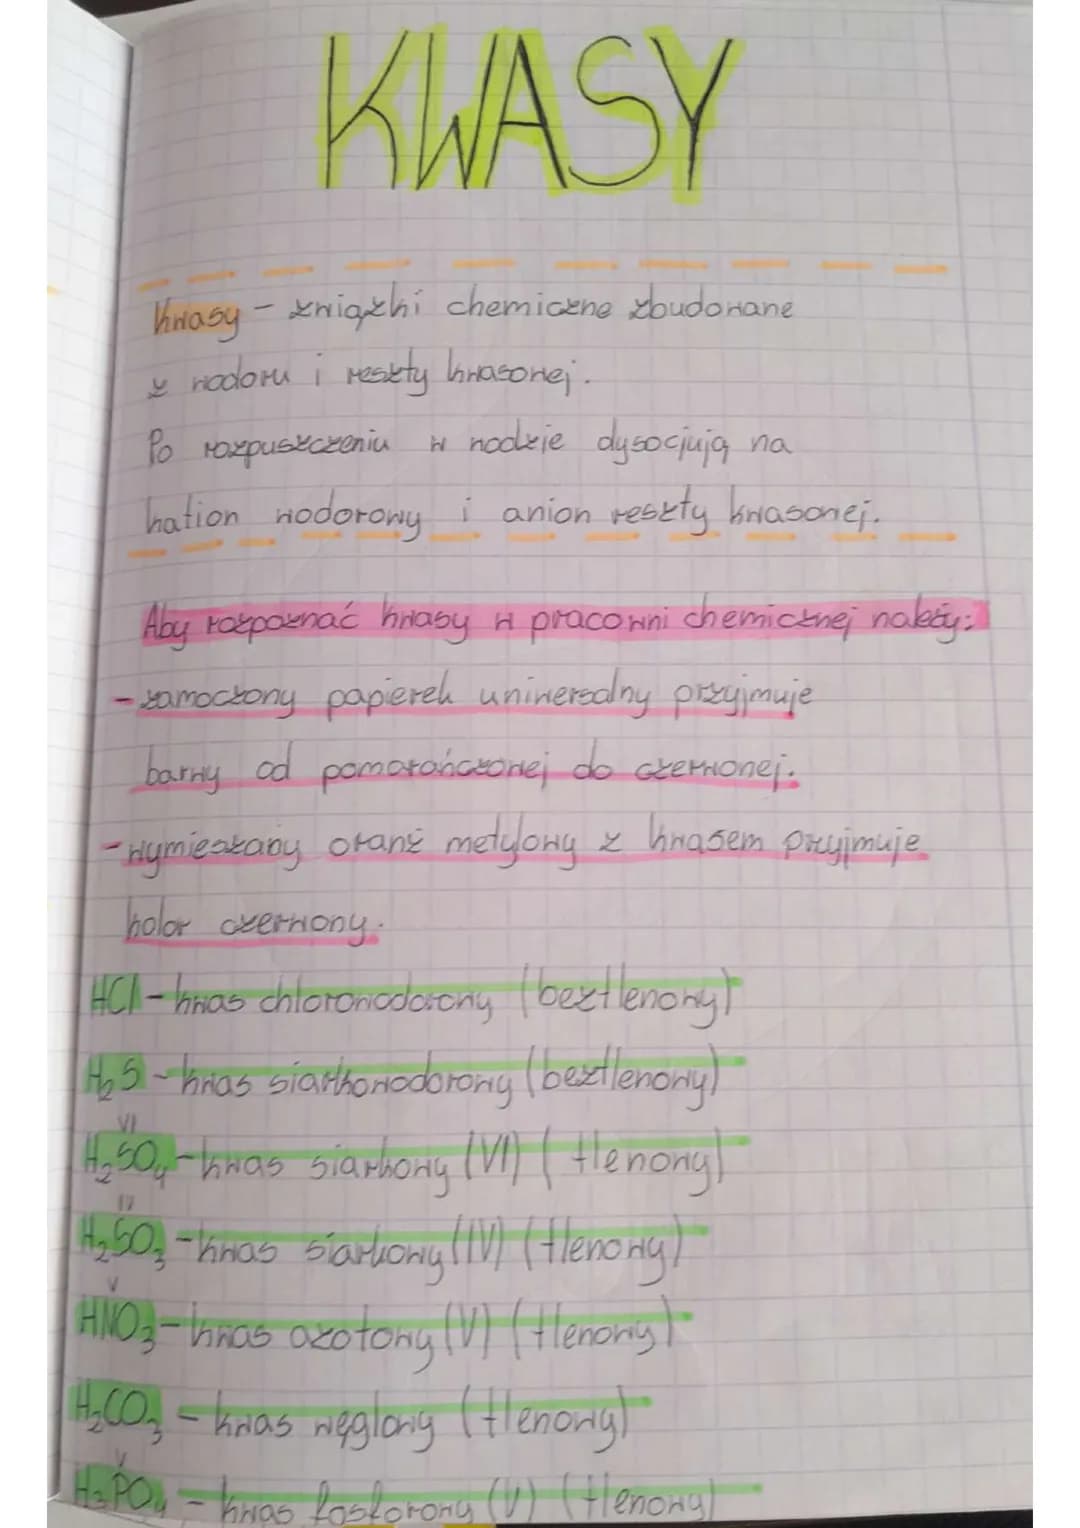 KWASY
Kwasy - związki chemiczne zbudowane
z wodoru i reszty kwasowej.
Po rozpuszczeniu w wodzie dysocjują na
kation wodorowy i anion reszty kwasowej.
Aby rozpoznać kwasy w pracowni chemicznej należy:
- zamoczony papierek uniwersalny przyjmuje
barwy od pomarańczowej do czerwonej.
- wymieszany oranż metylowy z kwasem przyjmuje
kolor czerwony.
HCl - kwas chlorowodorowy (beztlenowy)
H₂S - kwas siarkowodorowy (beztlenowy)
VI
H₂SO₄ - kwas siarkowy (VI) (tlenowy)
IV
H₂SO₃ - kwas siarkowy (IV) (tlenowy)
V
HNO₃ - kwas azotowy (V) (tlenowy)
H₂CO₃ - kwas węglowy (tlenowy)
V
H₃PO₄ - kwas fosforowy (V) (tlenowy)